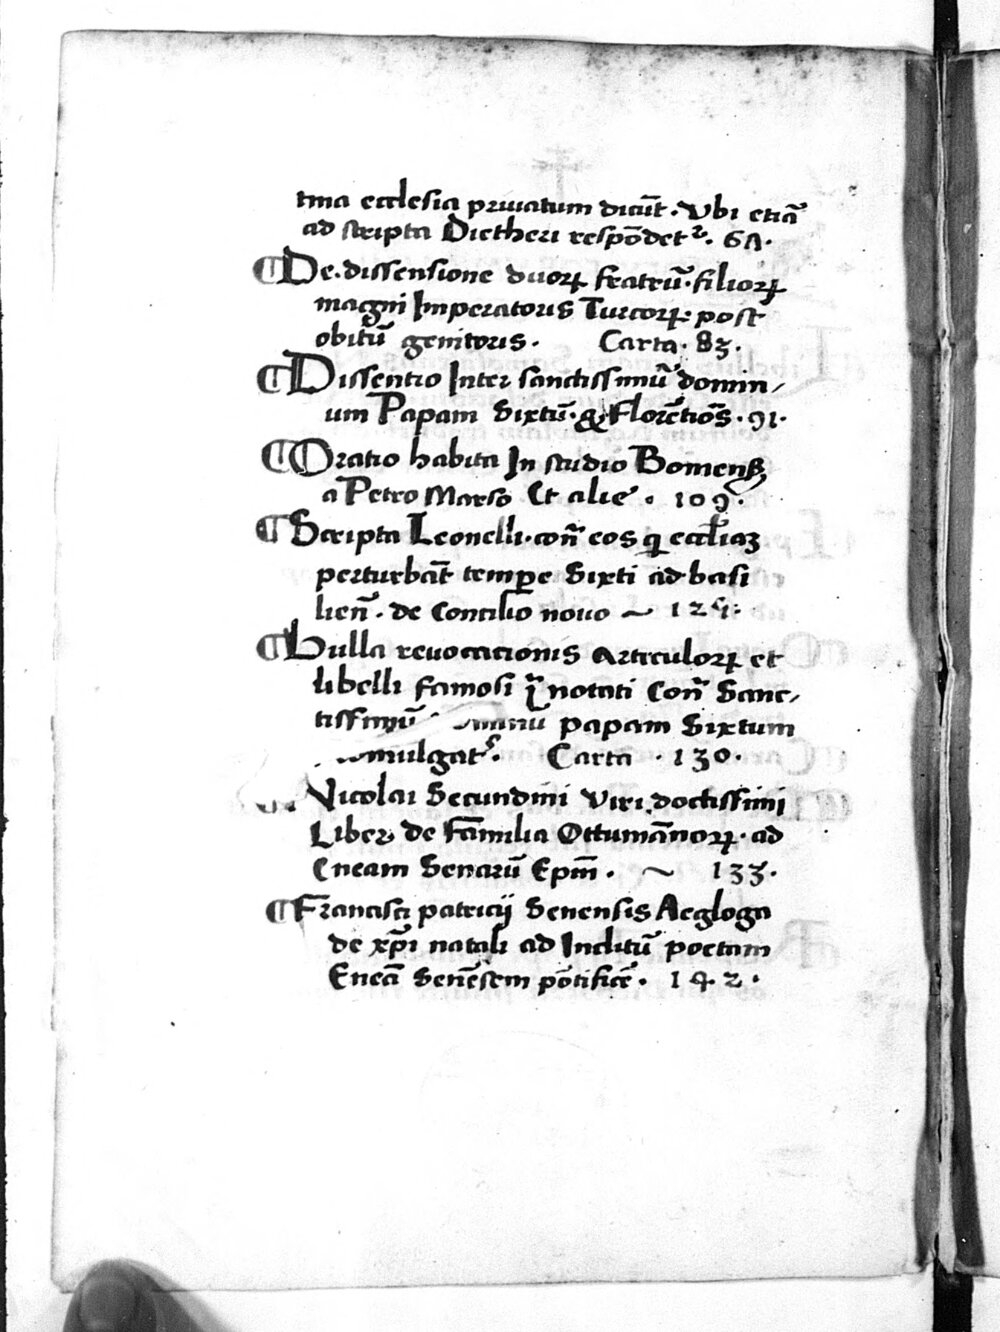 tina ecclesia priuatum dicūt. Vbi etiā
ad scripta Dietheri respōdet². 61.
¶ De. dissensione duorꝝ fratrū. filiorꝝ
magni Imperatoris Turcorꝝ. post
obitū genitoris. Carta. 83.
¶ Dissentio Inter sanctissimū domin/
um Papam Sixtū. & Florētiōs. 91.
¶ Oratio habita In studio Romenß
a Petro Marso Et alie. 109.
¶ Scripta Leonelli. con̄ eos q eccłiaʒ
perturbāt tempe Sixti ad basi
lien̄. de Concilio nouo ~ 125.
¶ Bulla reuocationis Articulorꝝ et
libelli famosi q̄ notati Con̄ Sanc/
tissimū papam Sixtum
mulgat². Carta . 130.
Nicolai Secundini Viri doctissimi
Liber de Fāmilia Ottumānorꝝ. ad
Eneam Senarū Epm̄. ~ 133.
¶ Francisci patricij Senensis Aegloga
de xp̄i natali ad Inclitū poetam
Eneā Senēsem pōtificē. 142.